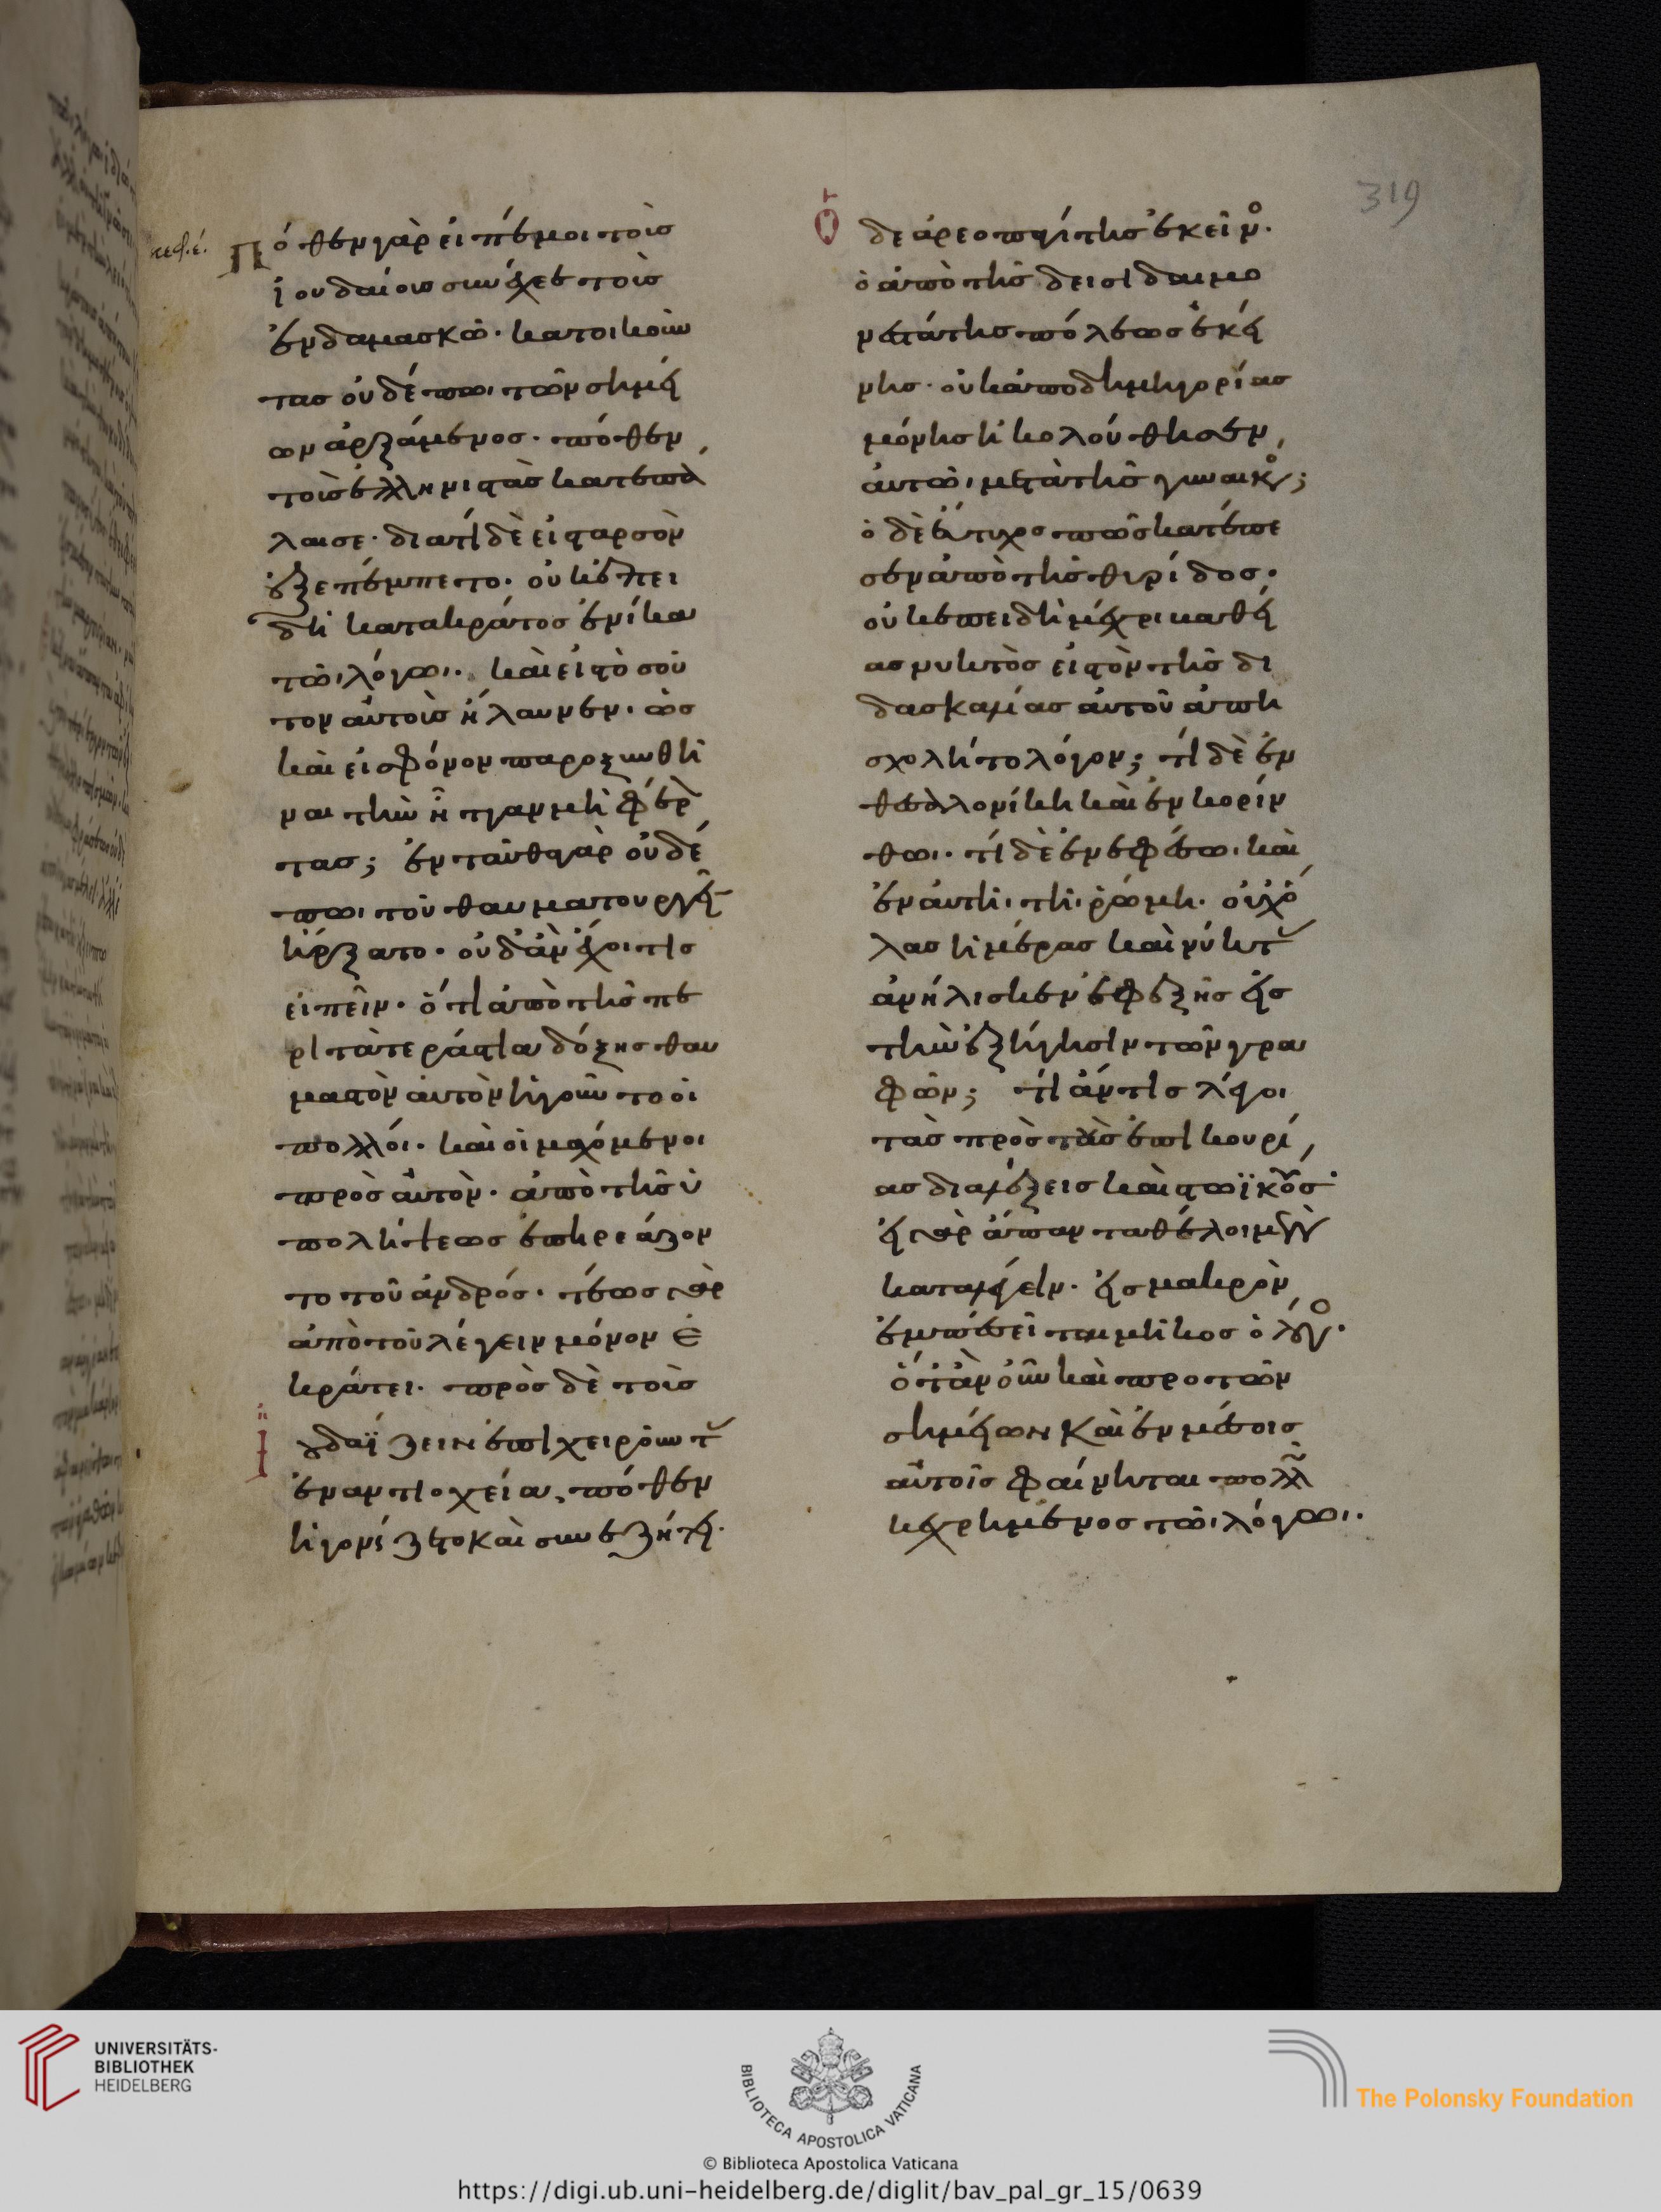 319
κεφ. έ.
Πόθεν γὰρ εἰπέ μοι τοὺσ
ἰουδαίουσ συνέχεε τοὺσ
ἐν δαμασκῶ· κατοικοῦν
τασ οὐδέπω, τῶν σημεί
ων ἀρξάμενοσ· πόθεν
τοὺσ ἑλληνιστὰσ κατεπά
λαισε· διατί δὲ εἰσ ταρσὸν
ἐξεπέμπετο· οὐκ ἐπει
δὴ κατακράτοσ ἐνίκα
τῶ λόγω· καὶ εἰσ τοσοῦ
τον αὐτοὺσ ἤλαυνεν· ὡσ
καὶ εἰσ φόνον παροξυνθῆ
ναι τὴν ἧτταν μὴ φέρον
τασ; ἐνταῦθα γὰρ οὐδέ
πω τοῦ θαυματουργεῖν
ἤρξατο· οὐδ᾽ ἂν ἔχοι τισ
εἰπεῖν· ὅτι ἀπὸ τῆσ πε
ρὶ τὰ τεράστια δόξησ θαυ
μαστὸν αὐτὸν ἡγοῦντο οἱ
πολλοί· καὶ οἱ μαχόμενοι
πρὸσ αὐτὸν· ἀπὸ τῆσ ὑ
πολήψεωσ ἐπηρεάζον
το τοῦ ἀνδρόσ· τέωσ γὰρ
ἀπὸ τοῦ λέγειν μόνον ἐ
κράτει· πρὸσ δὲ τοὺσ
ἰουδαΐζειν ἐπιχειροῦντασ
ἐν αντιοχεία, πόθεν
ἠγωνίζετο καὶ συνεζήτει·
Ὁ δε ἀρεοπαγίτησ ἐκεῖνοσ·
ὁ ἀπὸ τῆσ δεισιδαιμο
νεστάτησ πόλεωσ ἐκεί
νησ· οὐκ ἀπὸ δημηγορίασ
μόνησ ἠκολούθησεν
αὐτῶ, μετὰ τῆσ γυναικόσ;
ὁ δὲ εὔτυχοσ πῶσ κατέπε
σεν ἀπὸ τῆσ θυρίδοσ·
οὐκ ἐπειδὴ μέχρι βαθεί
ασ νυκτὸσ εἰσ τὸν τῆσ δι
δασκαλίασ αὐτοῦ ἀπη
σχολῆτο λόγον; τί δὲ ἐν
θεσσαλονίκη καὶ ἐν κορίν
θω· τί δὲ ἐν εφέσω· καὶ
ἐν αὐτῆ τῆ ῥώμη· οὐχ ὅ
λασ ἡμέρασ καὶ νύκτασ
ἀνήλισκεν ἐφεξῆσ εἰσ
τὴν ἐξήγησιν τῶν γρα
φῶν; τί ἄν τισ λέγοι
τὰσ πρὸσ τοὺσ ἐπικουρί
ασ διαλέξεισ καὶ στωϊκοῦσ·
εἰ γὰρ ἅπαντα θέλοιμεν
καταλέγειν· εἰσ μακρὸν
ἐμπεσεῖται μῆκοσ ὁ λόγοσ·
ὅταν οὖν καὶ προ τῶν
σημείων καὶ ἐν μέσοισ
αὐτοῖσ φαίνηται πολλῶ
κεχρημένοσ τῶ λόγω·
UNIVERSITÄTS-
BIBLIOTHEK
HEIDELBERG
BIBLIOTECA APOSTOLICA VATICANA
The Polonsky Foundation
© Biblioteca Apostolica Vaticana
https://digi.ub.uni-heidelberg.de/diglit/bav_pal_gr_15/0639